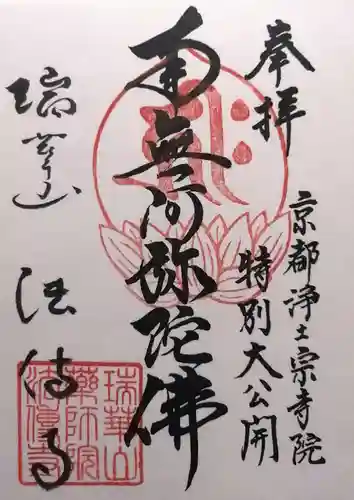 奉拝
京都浄土宗寺院
特別大公開
南無阿弥陀佛
瑞華山
法傳寺
瑞華山
薬師院
法傳寺